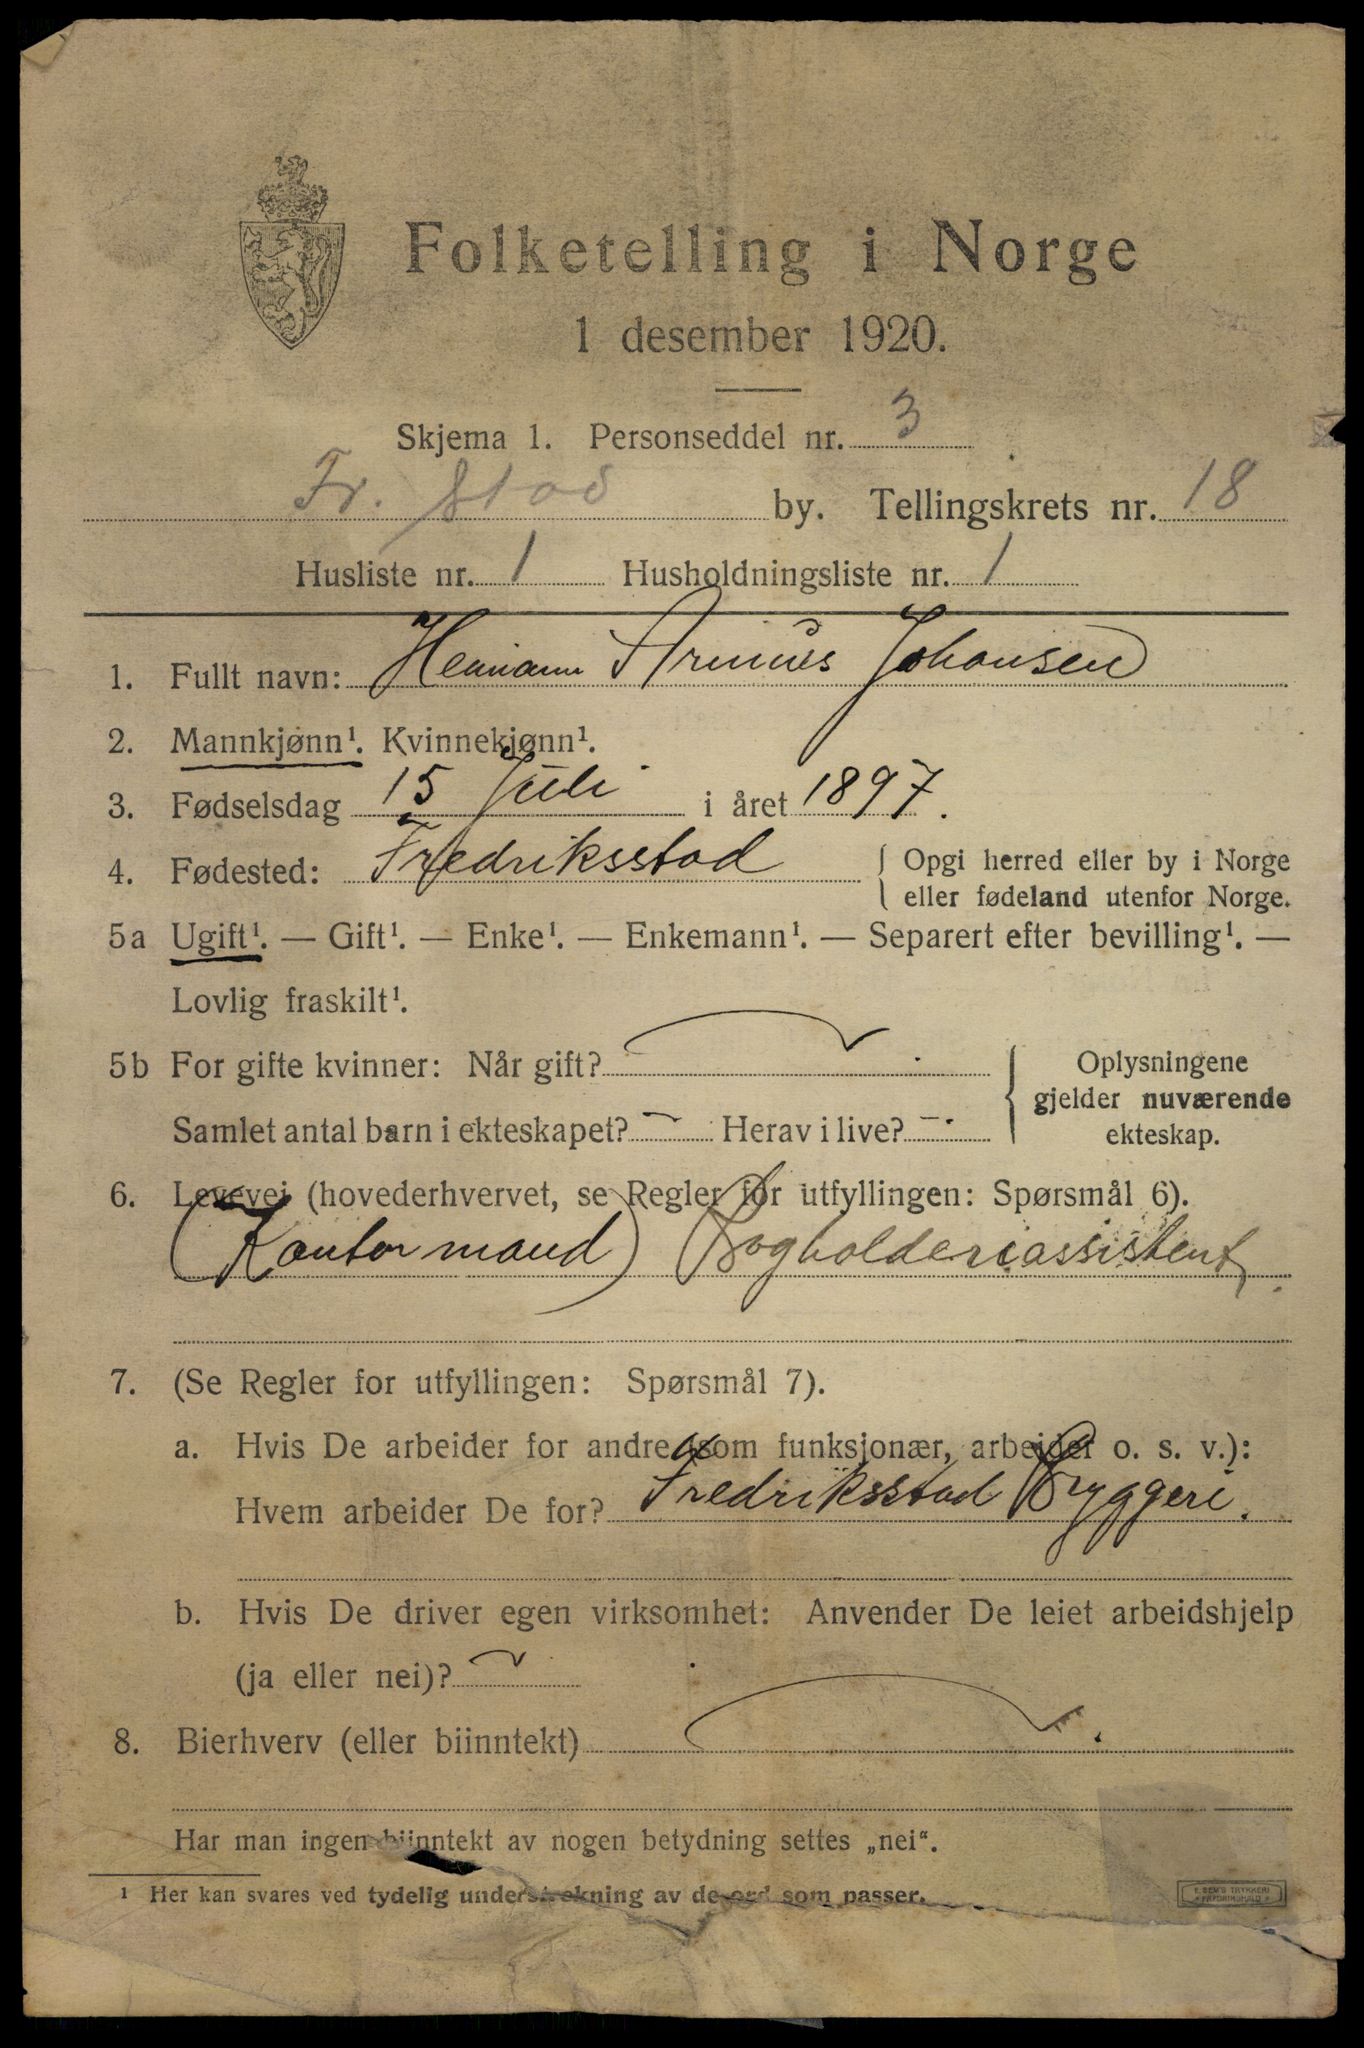 Folketelling i Norge
1 desember 1920.
Skjema 1. Personseddel nr. 3
Fr. stad by. Tellingskrets nr. 18
Husliste nr. 1 Husholdningsliste nr. 1
1. Fullt navn: Hermann Armins Johansen
2. Mannkjønn¹. Kvinnekjønn¹.
3. Fødselsdag 15 Juli i året 1897.
4. Fødested: Fredriksstad { Opgi herred eller by i Norge
eller fødeland utenfor Norge.
5a Ugift¹. — Gift¹. — Enke¹. — Enkemann¹. — Separert efter bevilling¹. —
Lovlig fraskilt¹.
5b For gifte kvinner: Når gift? { Oplysningene
gjelder nuværende
Samlet antal barn i ekteskapet? Herav i live? ekteskap.
6. Levevei (hovederhvervet, se Regler for utfyllingen: Spørsmål 6).
(Kontormand) Bogholderiassistent.
7. (Se Regler for utfyllingen: Spørsmål 7).
a. Hvis De arbeider for andre (som funksjonær, arbeider o. s. v.):
Hvem arbeider De for? Fredriksstad Bryggeri.
b. Hvis De driver egen virksomhet: Anvender De leiet arbeidshjelp
(ja eller nei)?
8. Bierhverv (eller biinntekt)
Har man ingen biinntekt av nogen betydning settes „nei“.
¹ Her kan svares ved tydelig understrekning av de ord som passer.
E. SEM'S TRYKKERI
FREDRIKSHALD